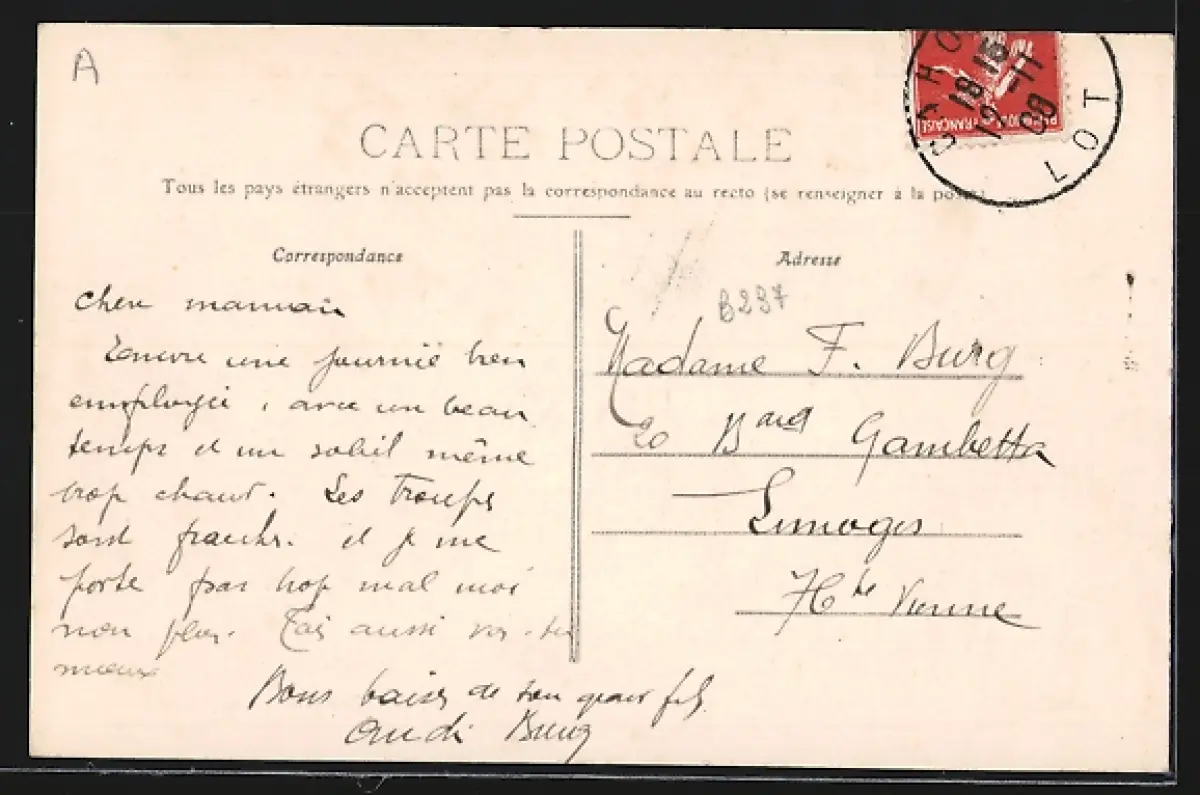 A
CAHO
18 15
12 -11
08
LOT
FRANÇAISE
CARTE POSTALE
Tous les pays étrangers n'acceptent pas la correspondance au recto (se renseigner à la poste)
Correspondance
Adresse
B237
chere maman
Encore une journée bien
employée, avec un beau
temps et un soleil même
trop chaud. Les Troupes
sont fraiches. et je me
porte pas trop mal moi
non plus. aussi
mieux
Bons baisers de ton grand fils
André Burg
Madame F. Burg
20 Bard Gambetta
Limoges
Hte Vienne